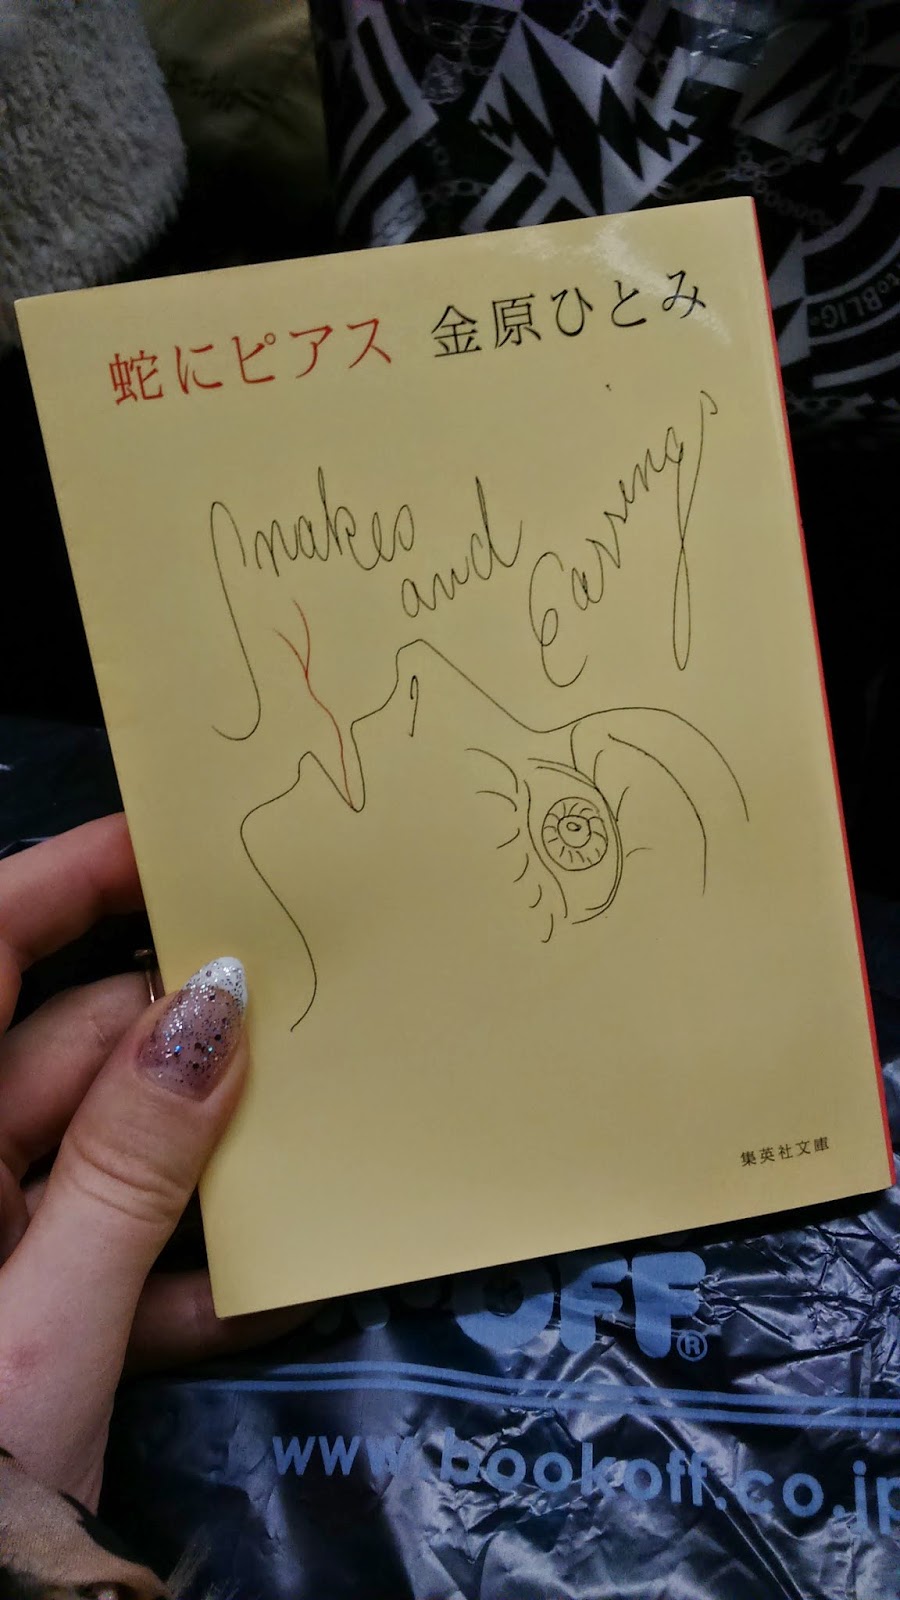 蛇にピアス 金原ひとみ
Snakes
and
Earrings
集英社文庫
OFF®
www.bookoff.co.jp
BLIG®